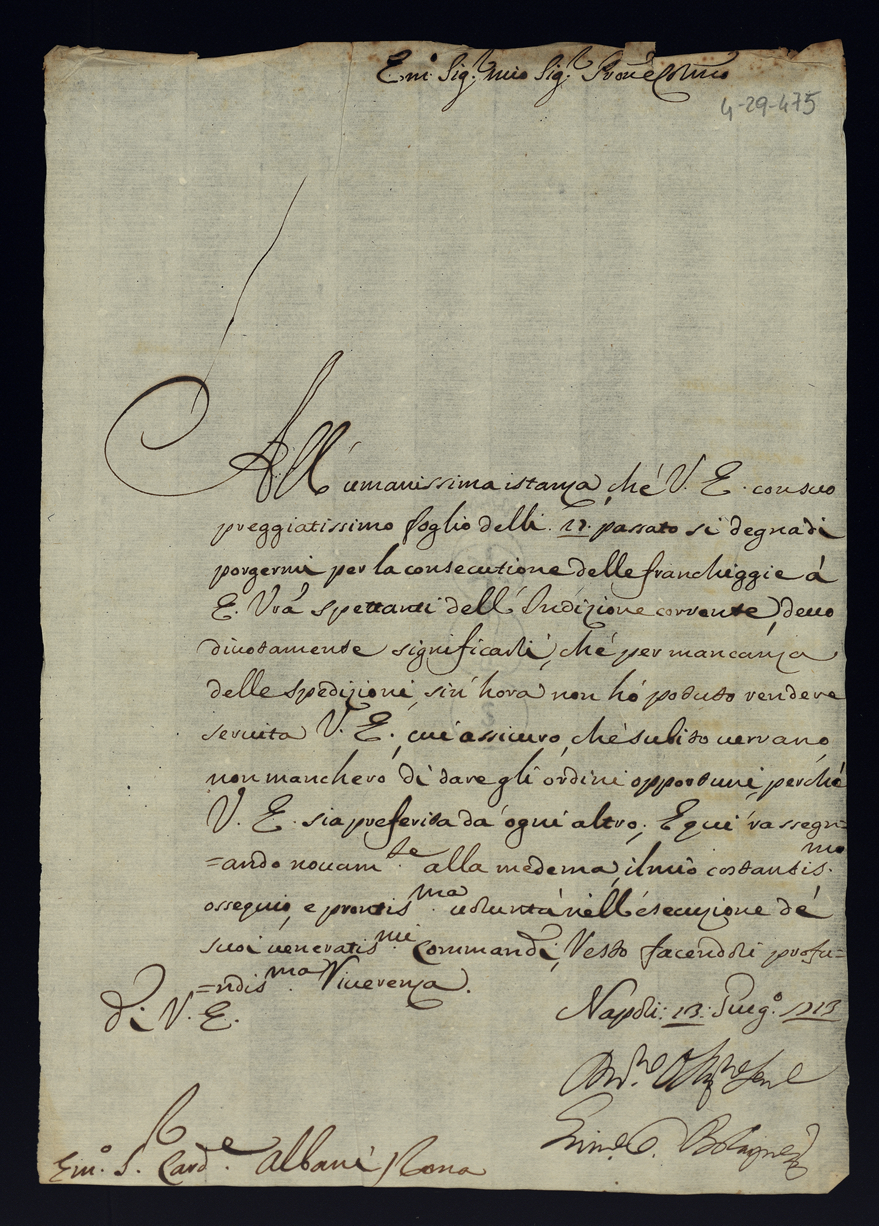 Em.º Sig.re mio Sig.re Prone Colmo
4-29-475
All' umanissima istanza, ché V. E. con suo
preggiatissimo foglio delli 17. passato si degna di
porgermi per la consecutione delle franchiggie á
E. Vrã spettanti dell' Indizione corrente, deuo
diuotamente significarli, ché per mancanza
delle spedizioni, sin' hora non hó potuto rendere
seruita V. E., cui assicuro, ché subito uerrano
non mancheró di dare gli ordini opportuni, perché
V. E. sia preferita da ogni altro; E qui rassegn=
=ando nouam.te alla medema, il mio costantis.mo
ossequio, e prontis.ma uoluntá nell' esecuzione dé
suoi ueneratis.mi Commandi, Resto facendoli profu=
=ndis.ma Riuerenza.
Di V. E.
Napoli: 13: Giug.º 1713
Em.º S. Card.e Albani Roma